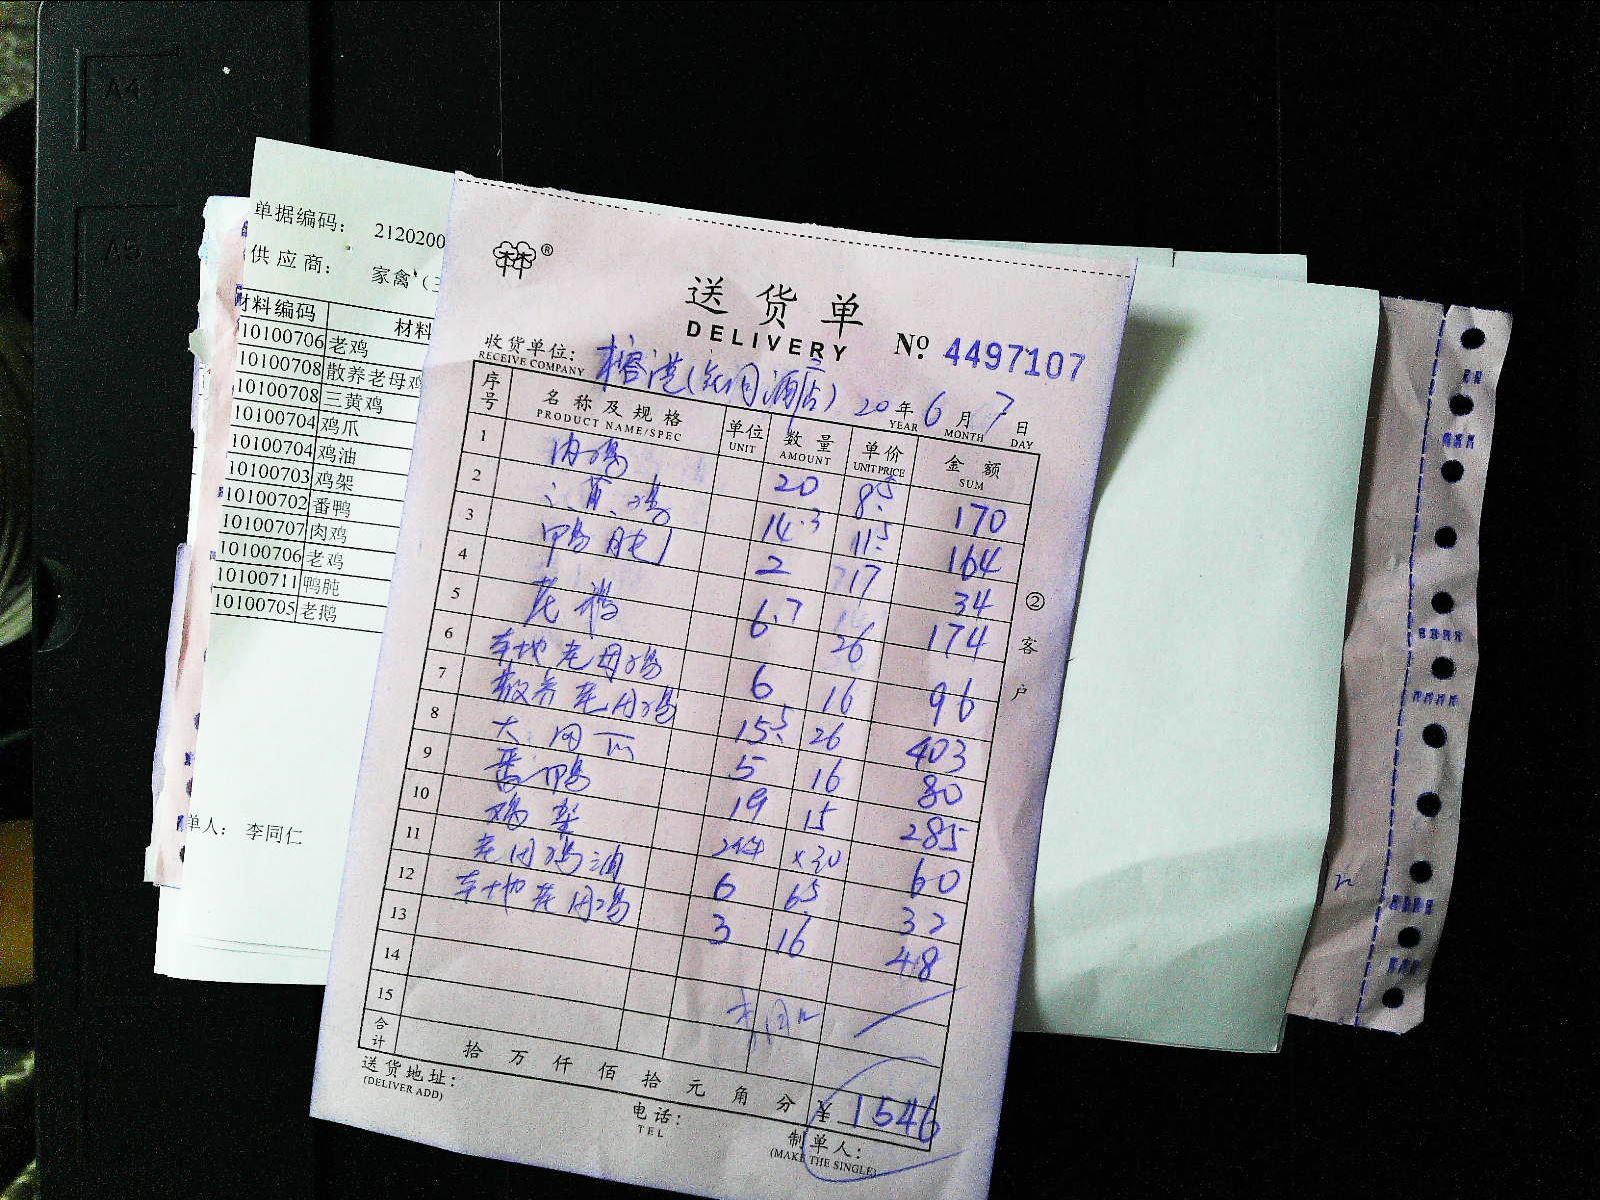 A4
A5
单据编码： 2120200
供应商： 家禽（三
材料编码 材料
10100706 老鸡
10100708 散养老母鸡
10100708 三黄鸡
10100704 鸡爪
10100704 鸡油
10100703 鸡架
10100702 番鸭
10100707 肉鸡
10100706 老鸡
10100711 鸭肫
10100705 老鹅
单人： 李同仁
林 ®
送货单
DELIVERY
No 4497107
收货单位：
RECEIVE COMPANY
榕港( 酒店) 20年 6月 7日
YEAR MONTH DAY
序号 名称及规格 单位 数量 单价 金额
PRODUCT NAME/SPEC UNIT AMOUNT UNIT PRICE SUM
1 肉鸡 20 8.5 170
2 三黄鸡 14.3 11.5 164
3 鸭肫 2 17 34
4 老鹅 6.7 26 174
5 本地老母鸡 6 16 96
6 散养老母鸡 15.5 26 403
7 大肉爪 5 16 80
8 番鸭 19 15 285
9 鸡架 2件 ×30 60
10 老母鸡油 6 65 32
11 本地老母鸡 3 16 48
12
13
14
15
李同仁
合计 拾 万 仟 佰 拾 元 角 分 ¥ 1546
送货地址：
(DELIVER ADD)
电话：
TEL
制单人：
(MAKE THE SINGLE)
② 客户